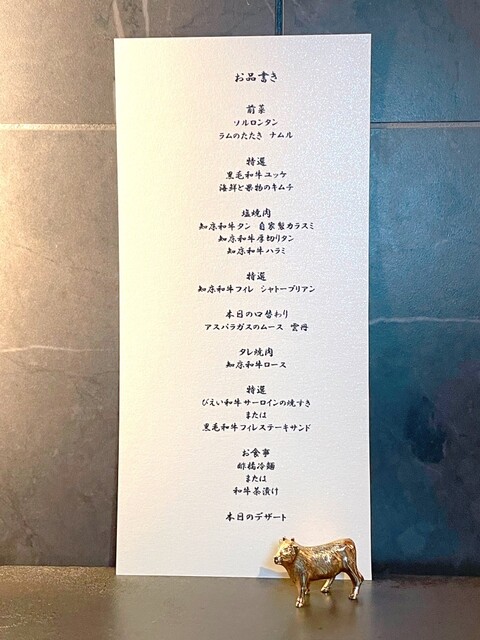 お品書き
前菜
ソルロンタン
ラムのたたき ナムル
特選
黒毛和牛ユッケ
海鮮と果物のキムチ
塩焼肉
知床和牛タン 自家製カラスミ
知床和牛厚切りタン
知床和牛ハラミ
特選
知床和牛フィレ シャトーブリアン
本日の口替わり
アスパラガスのムース 雲丹
タレ焼肉
知床和牛ロース
特選
びえい和牛サーロインの焼すき
または
黒毛和牛フィレステーキサンド
お食事
緋橋冷麺
または
和牛茶漬け
本日のデザート